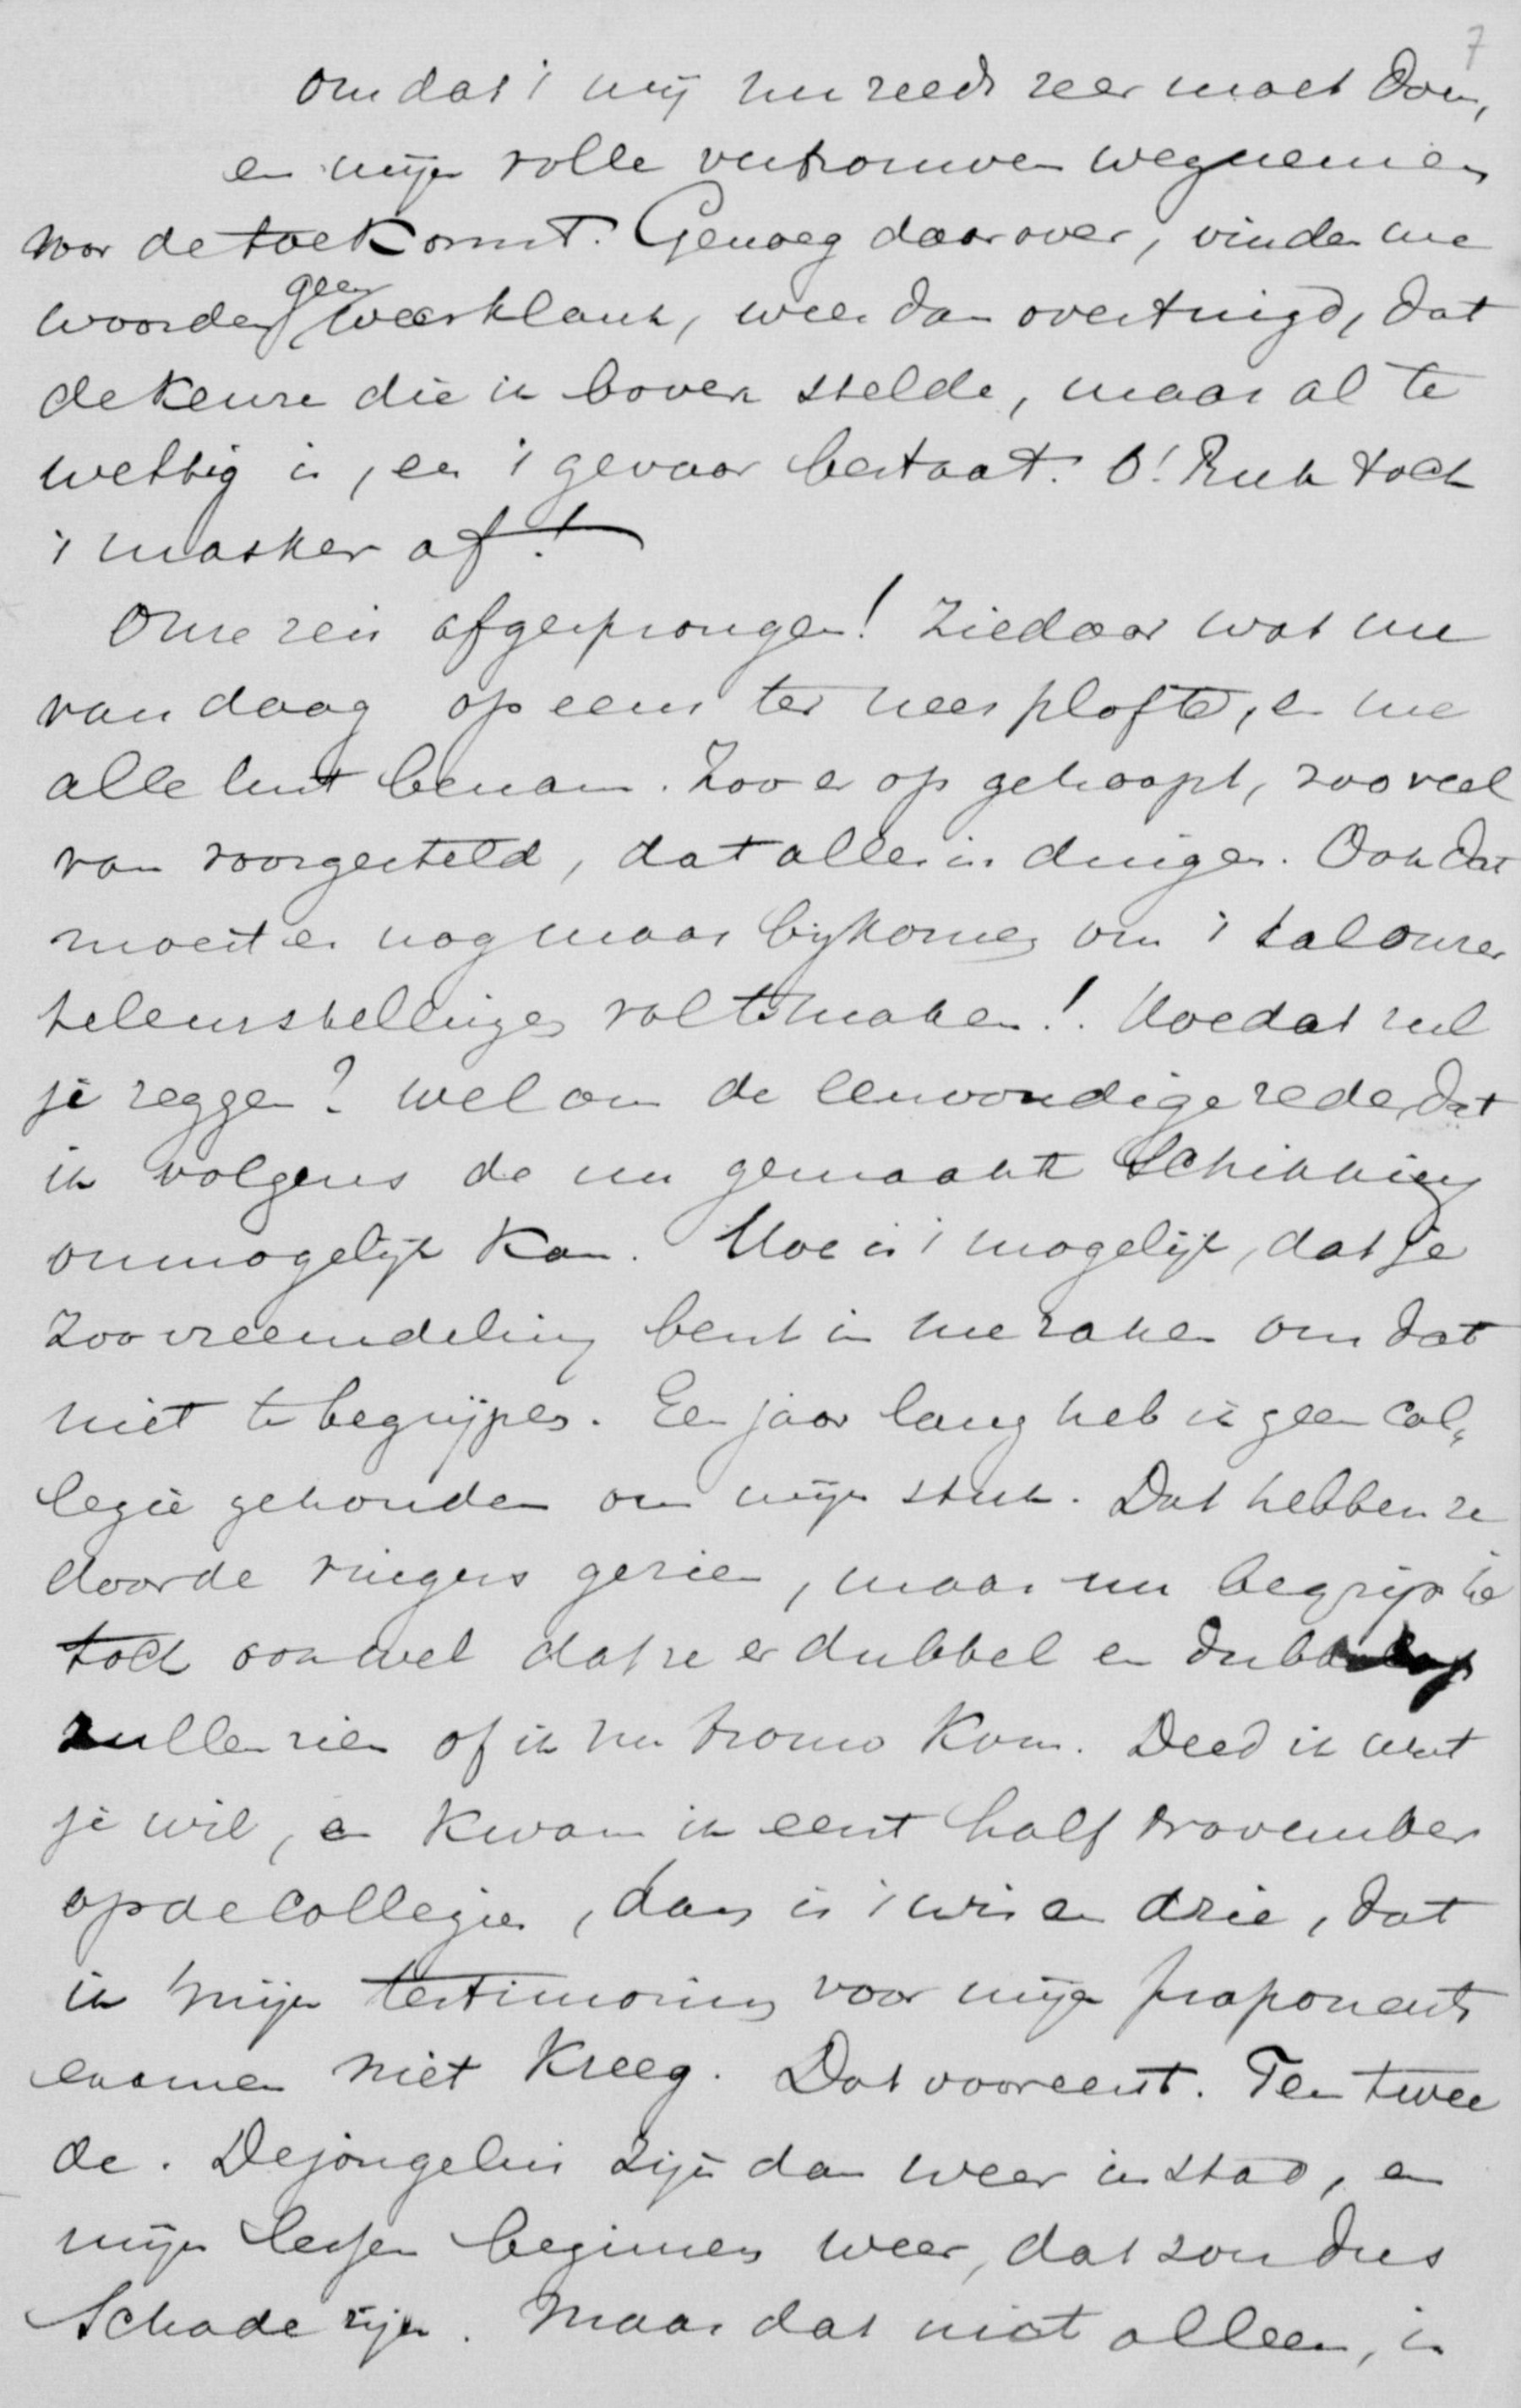 7
omdat 't mij nu reeds zeer moet doen,
en mijn volle vertrouwen wegnemen
voor de toekomst. Genoeg daarover, vinden me
woorden geen weerklank, wees dan overtuigd, dat
de keuze die ik boven stelde, maar al te
wettig is, en 't gevaar bestaat. O! Ruk toch
't masker af!
Onze reis afgesprongen! Ziedaar wat me
van daag op eens ter neer plofte, en me
alle lust benam. Zoo er op gehoopt, zooveel
van voorgesteld, dat alles in duigen. Ook dat
moest er nog maar bijkomen om 't tal onzer
teleurstellingen vol te maken!. Hoe dat zul
je zeggen? wel om de eenvoudige rede, dat
ik volgens de nu gemaakte schikking
onmogelijk kan. Hoe is 't mogelijk, dat je
zoo vreemdeling bent in me zaken om dat
niet te begrijpen. Een jaar lang heb ik geen col„
legie gehouden om mijn stuk. Dat hebben ze
door de vingers gezien, maar nu begrijp je
toch ook wel dat ze er dubbel en dubbel op
zullen zien of ik nu trouw kom. Deed ik wat
je wil, en kwam ik eerst half november
op de collegies, dan is 't wis en drie, dat
ik mijn testimonium voor mijn proponents
examen niet kreeg. Dat vooreerst. Ten twee
de. De jongelui zijn dan weer in stad, en
mijn lessen beginnen weer, dat zou dus
schade zijn. Maar dat niet alleen, in